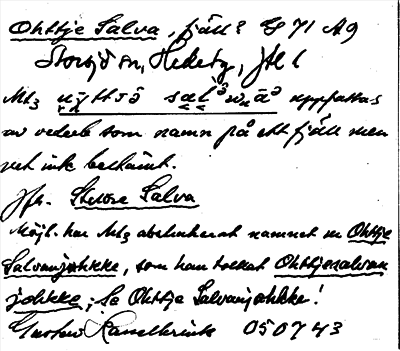 Ohttje Salva, fjäll? G 71 A9
Storsjön, Hede tg, Jtl l
Mtz sal uppfattas
av vederb som namn på ett fjäll men
vet inte bestämt.
Jfr. Stuore Salva
Möjl. har Mtz abstraherat namnet ur Ohttje
Salvanjohkke, som han tolkat Ohttjesalvan
johkke; Se Ohttje Salvanjohkke!
Gustav Hasselbrink 050743